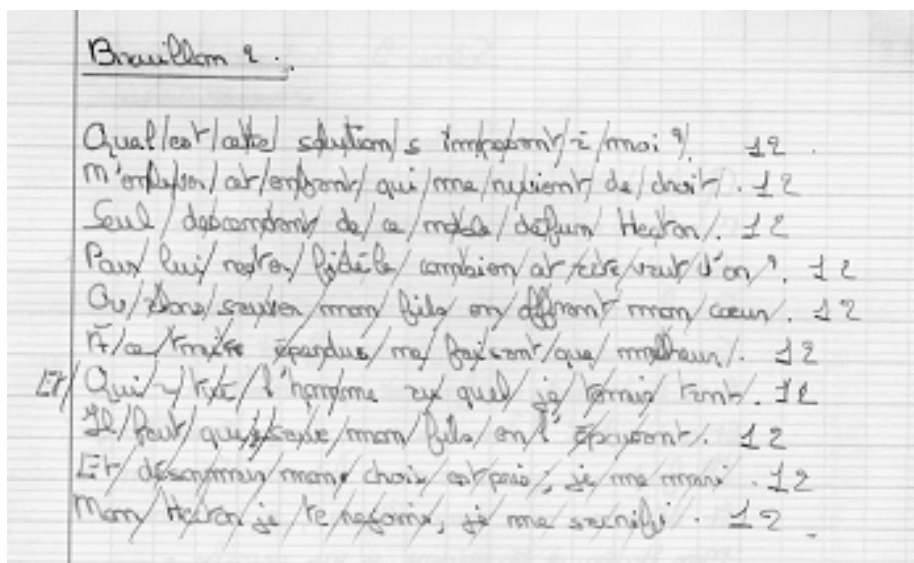 Brouillon 2 :
Quel/est/cette solution/s imposant/à/moi ? 12
M'enlever/cet/enfant/qui/me/revient/de/droit/. 12
Seul/descendant/de/ce/noble/défun Hector/. 12
Pour/lui/rester/fidèle/combien cet être/vaut/d'or ? 12
Ou/dans/sauver/mon/fils/en/offrant mon/cœur/. 12
À/ce/traitre épandus/me/faisant/que/malheur/. 12
Et/Qui/a/tué/l'homme au quel/je/tenais/tant/. 12
Il/faut/que/je sauve/mon/fils/en l'épousant/. 12
Et/désormais/mon/choix/est pris ; je me mari. 12
Mon/Hector je/te rejoins, je me sacrifi. 12